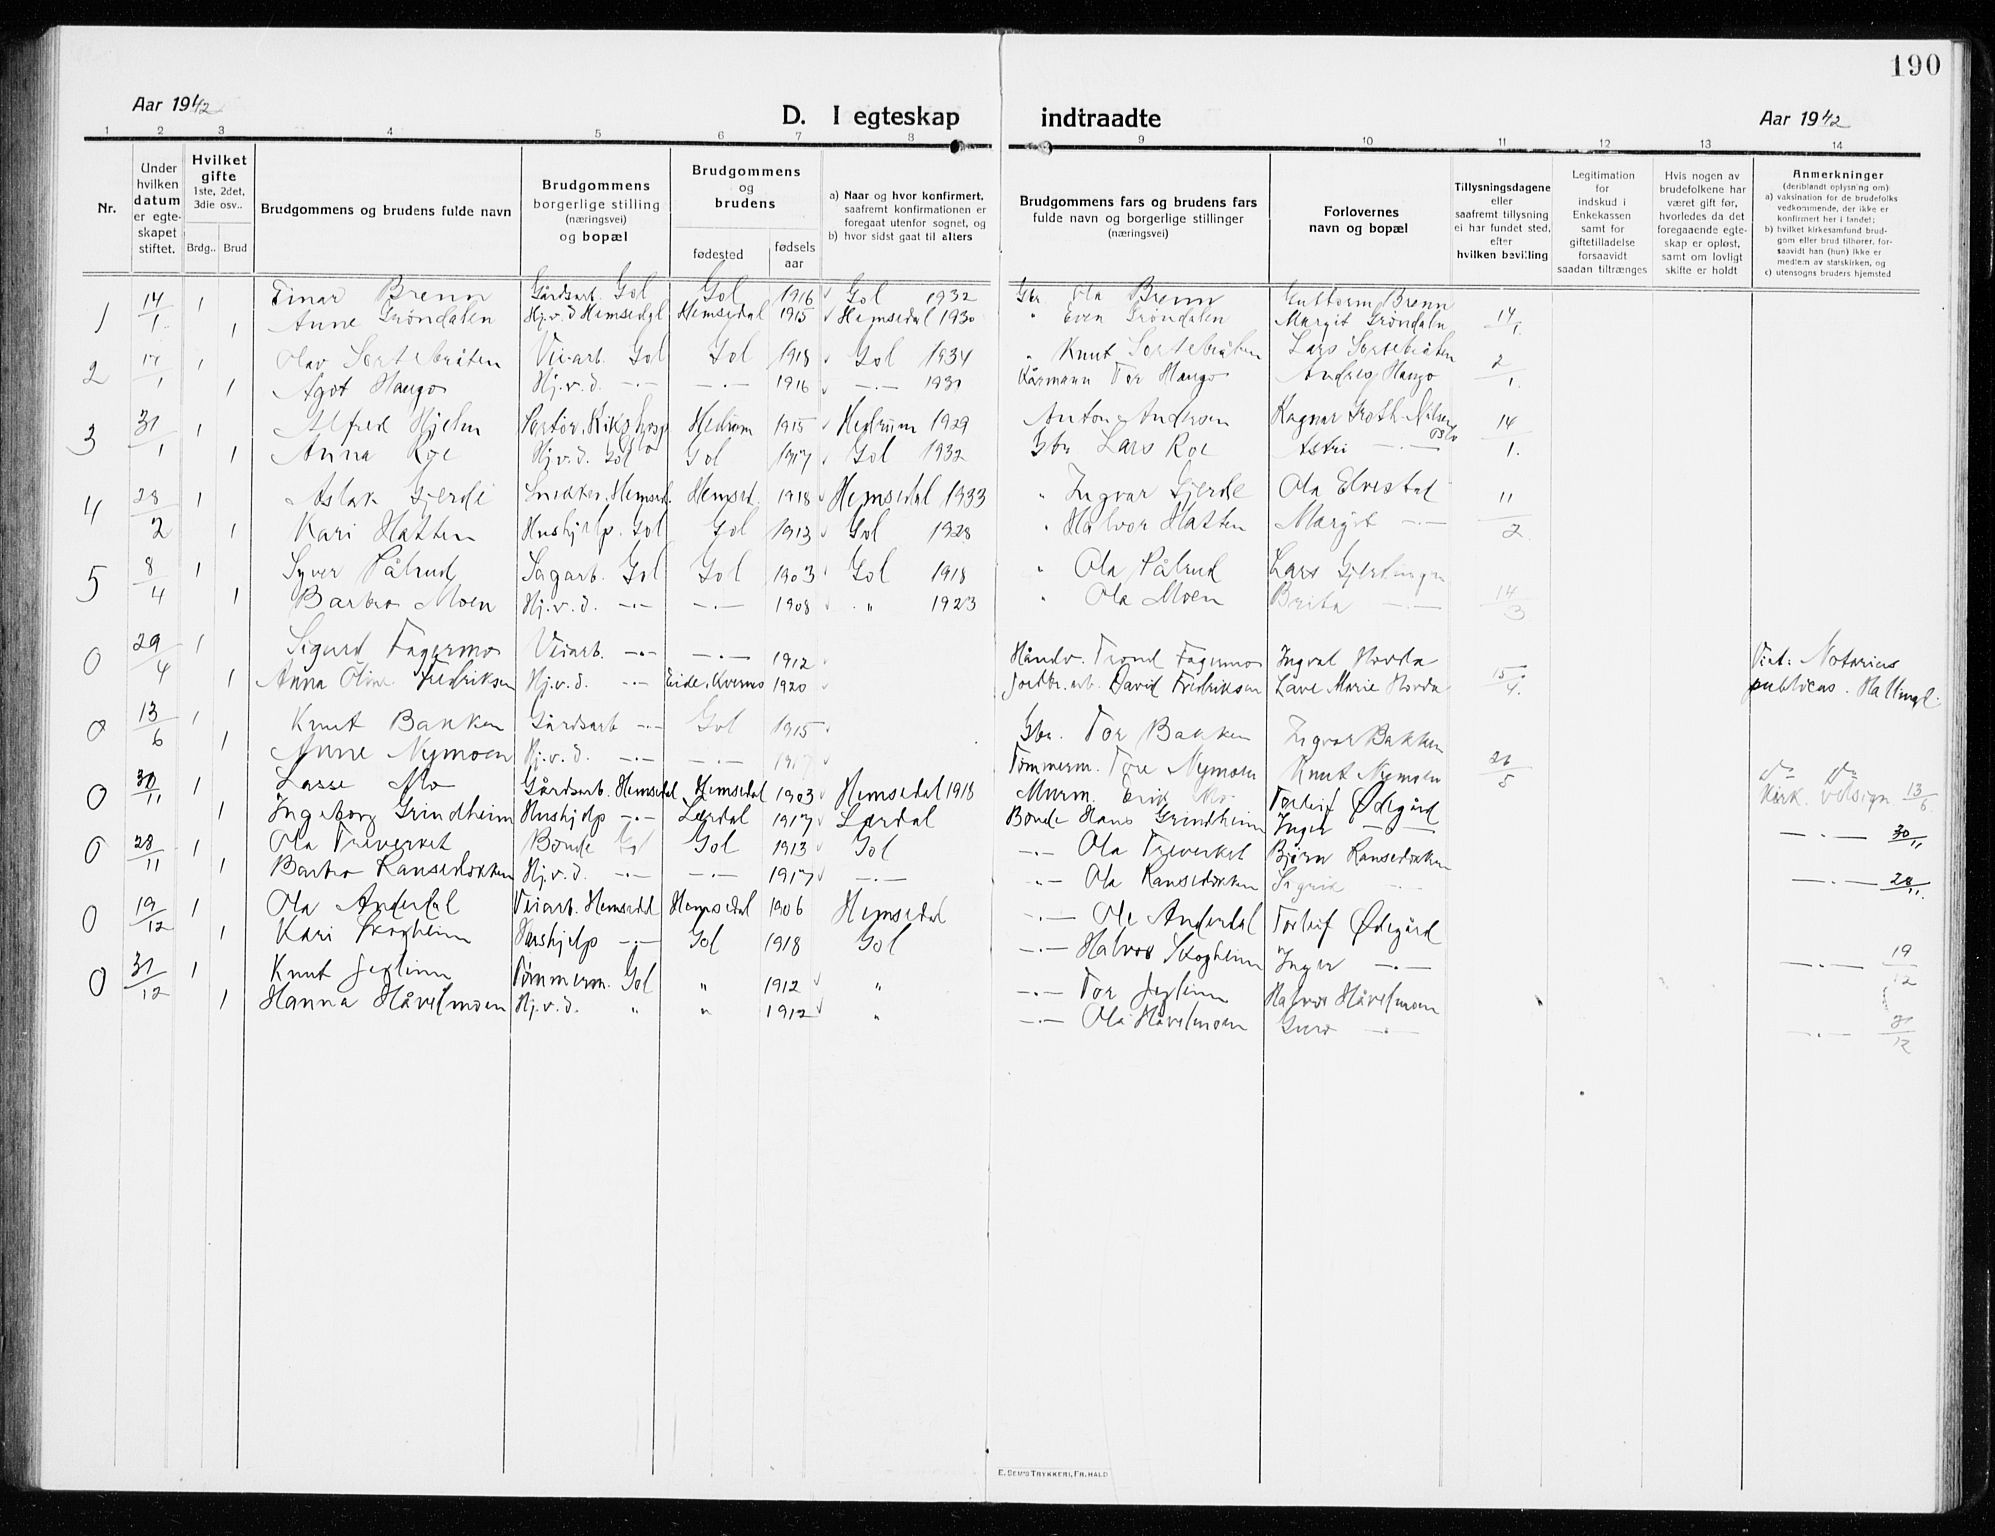 190
Aar 1942
D. I egteskap indtraadte
Aar 1942
1 2 3 4 5 6 7 8 9 10 11 12 13 14
Nr.
Under hvilken datum er egte-skapet stiftet.
Hvilket gifte 1ste, 2det, 3die osv..
Brdg.. Brud
Brudgommens og brudens fulde navn
Brudgommens borgerlige stilling (næringsvei) og bopæl
Brudgommens og brudens
fødested
fødsels aar
a) Naar og hvor konfirmert, saafremt konfirmationen er foregaat utenfor sognet, og
b) hvor sidst gaat til alters
Brudgommens fars og brudens fars fulde navn og borgerlige stillinger (næringsvei)
Forlovernes navn og bopæl
Tillysningsdagene eller saafremt tillysning ei har fundet sted, efter hvilken bevilling
Legitimation for indskud i Enkekassen samt for giftetilladelse forsaavidt saadan tiltrænges
Hvis nogen av brudefolkene har været gift før, hvorledes da det foregaaende egte-skap er opløst, samt om lovligt skifte er holdt
Anmerkninger
(deriblandt oplysning om)
a) vaksination for de brudefolks vedkommende, der ikke er konfirmert her i landet;
b) hvilket kirkesamfund brud-gom eller brud tilhører, for-saavidt han (hun) ikke er medlem av statskirken, og
c) utensogns bruders hjemsted
1 14/1 1 Einar Brenn Gårdsarb. Gol Gol 1916 Gol 1932 Gbr. Ola Brenn Guttorm Brenn 14/1
1 Anne Grøndalen Hj.v.d Hemsedal Hemsedal 1915 Hemsedal 1930 " Even Grøndalen Margit Grøndalen
2 17/1 1 Olav Sortebråten Veiarb. Gol Gol 1918 Gol 1934 " Knut Sortebråten Lars Sortebråten 2/1.
1 Agot Haugo Hj.v.d. -.- -.- 1916 -.- 1931 Kårmann Tor Haugo Andres Haugo
3 31/1 1 Alfred Hjelm Hedrum 1915 Hedrum 1929 Anton Andersen Ragnar Groth-Nilsen Oslo 14/1.
1 Anna Roe Hj.v.d. Gol Gol 1917 Gol 1932 Gbr Lars Roe Astri -.-
4 28/2 1 Aslak Gjerde Snekker. Hemsed. Hemsed. 1918 Hemsedal 1933 " Ingvar Gjerde Ola Elvestad 11/2
1 Kari Hatten Hushjelp. Gol Gol 1913 Gol 1928 " Halvor Hatten Margit -.-
5 8/4 1 Syver Pålrud Sagarb. Gol Gol 1903 Gol 1918 " Ola Pålrud Lars 14/3
1 Barbro Moen Hj.v.d. -.- -.- 1908 " 1923 " Ola Moen Brita -.-
0 29/4 1 Sigurd Fagermo Veiarb. -.- -.- 1912 Håndv. Trond Fagermo Ingval Hovda 15/4. Viet: Notarius
1 Anna Oline Fredriksen Hj.v.d. -.- Eide, Kvernes 1920 Jordbr.arb. David Fredriksen Lave Marie Hovda publicus. Hallingd.
0 13/6 1 Knut Bakken Gårdsarb -.- Gol 1915 Gbr. Tor Bakken Ingvar Bakken 26/5
1 Anne Nymoen Hj.v.d. -.- -.- 1917 Tømmerm. Tore Nymoen Knut Nymoen do do
Kirk. velsign. 13/6
0 30/11 1 Lasse Mo Gårdsarb. Hemsedal Hemsedal 1903 Hemsedal 1918 Murm. Erik Mo Torleif Ødegård
1 Ingeborg Grindheim Hushjelp -.- Lærdal 1917 Lærdal Bonde Hans Grindheim Inger -.- -.- 30/11
0 28/11 1 Ola Treverket Bonde Gol Gol 1913 Gol -.- Ola Treverket Bjørn Ransedokken
1 Barbro Ransedokken Hj.v.d. -.- -.- 1917 -.- -.- Ola Ransedokken Sigrid -.- -.- 28/11.
0 19/12 1 Ola Anderdal Veiarb. Hemsedal Hemsedal 1906 Hemsedal -.- Ole Anderdal Torleif Ødegård
1 Kari Skogheim Hushjelp -.- Gol 1918 Gol -.- Halvor Skogheim Inger -.- -.- 19/12
0 31/12 1 Knut Jeglinn Tømmerm. Gol " 1912 " -.- Tor Jeglinn Halvor Håvelmoen
1 Hanna Håvelmoen Hj.v.d. " " 1912 " -.- Ola Håvelmoen Guro -.- -.- 31/12
E. SEM'S TRYKKERI, FR.HALD